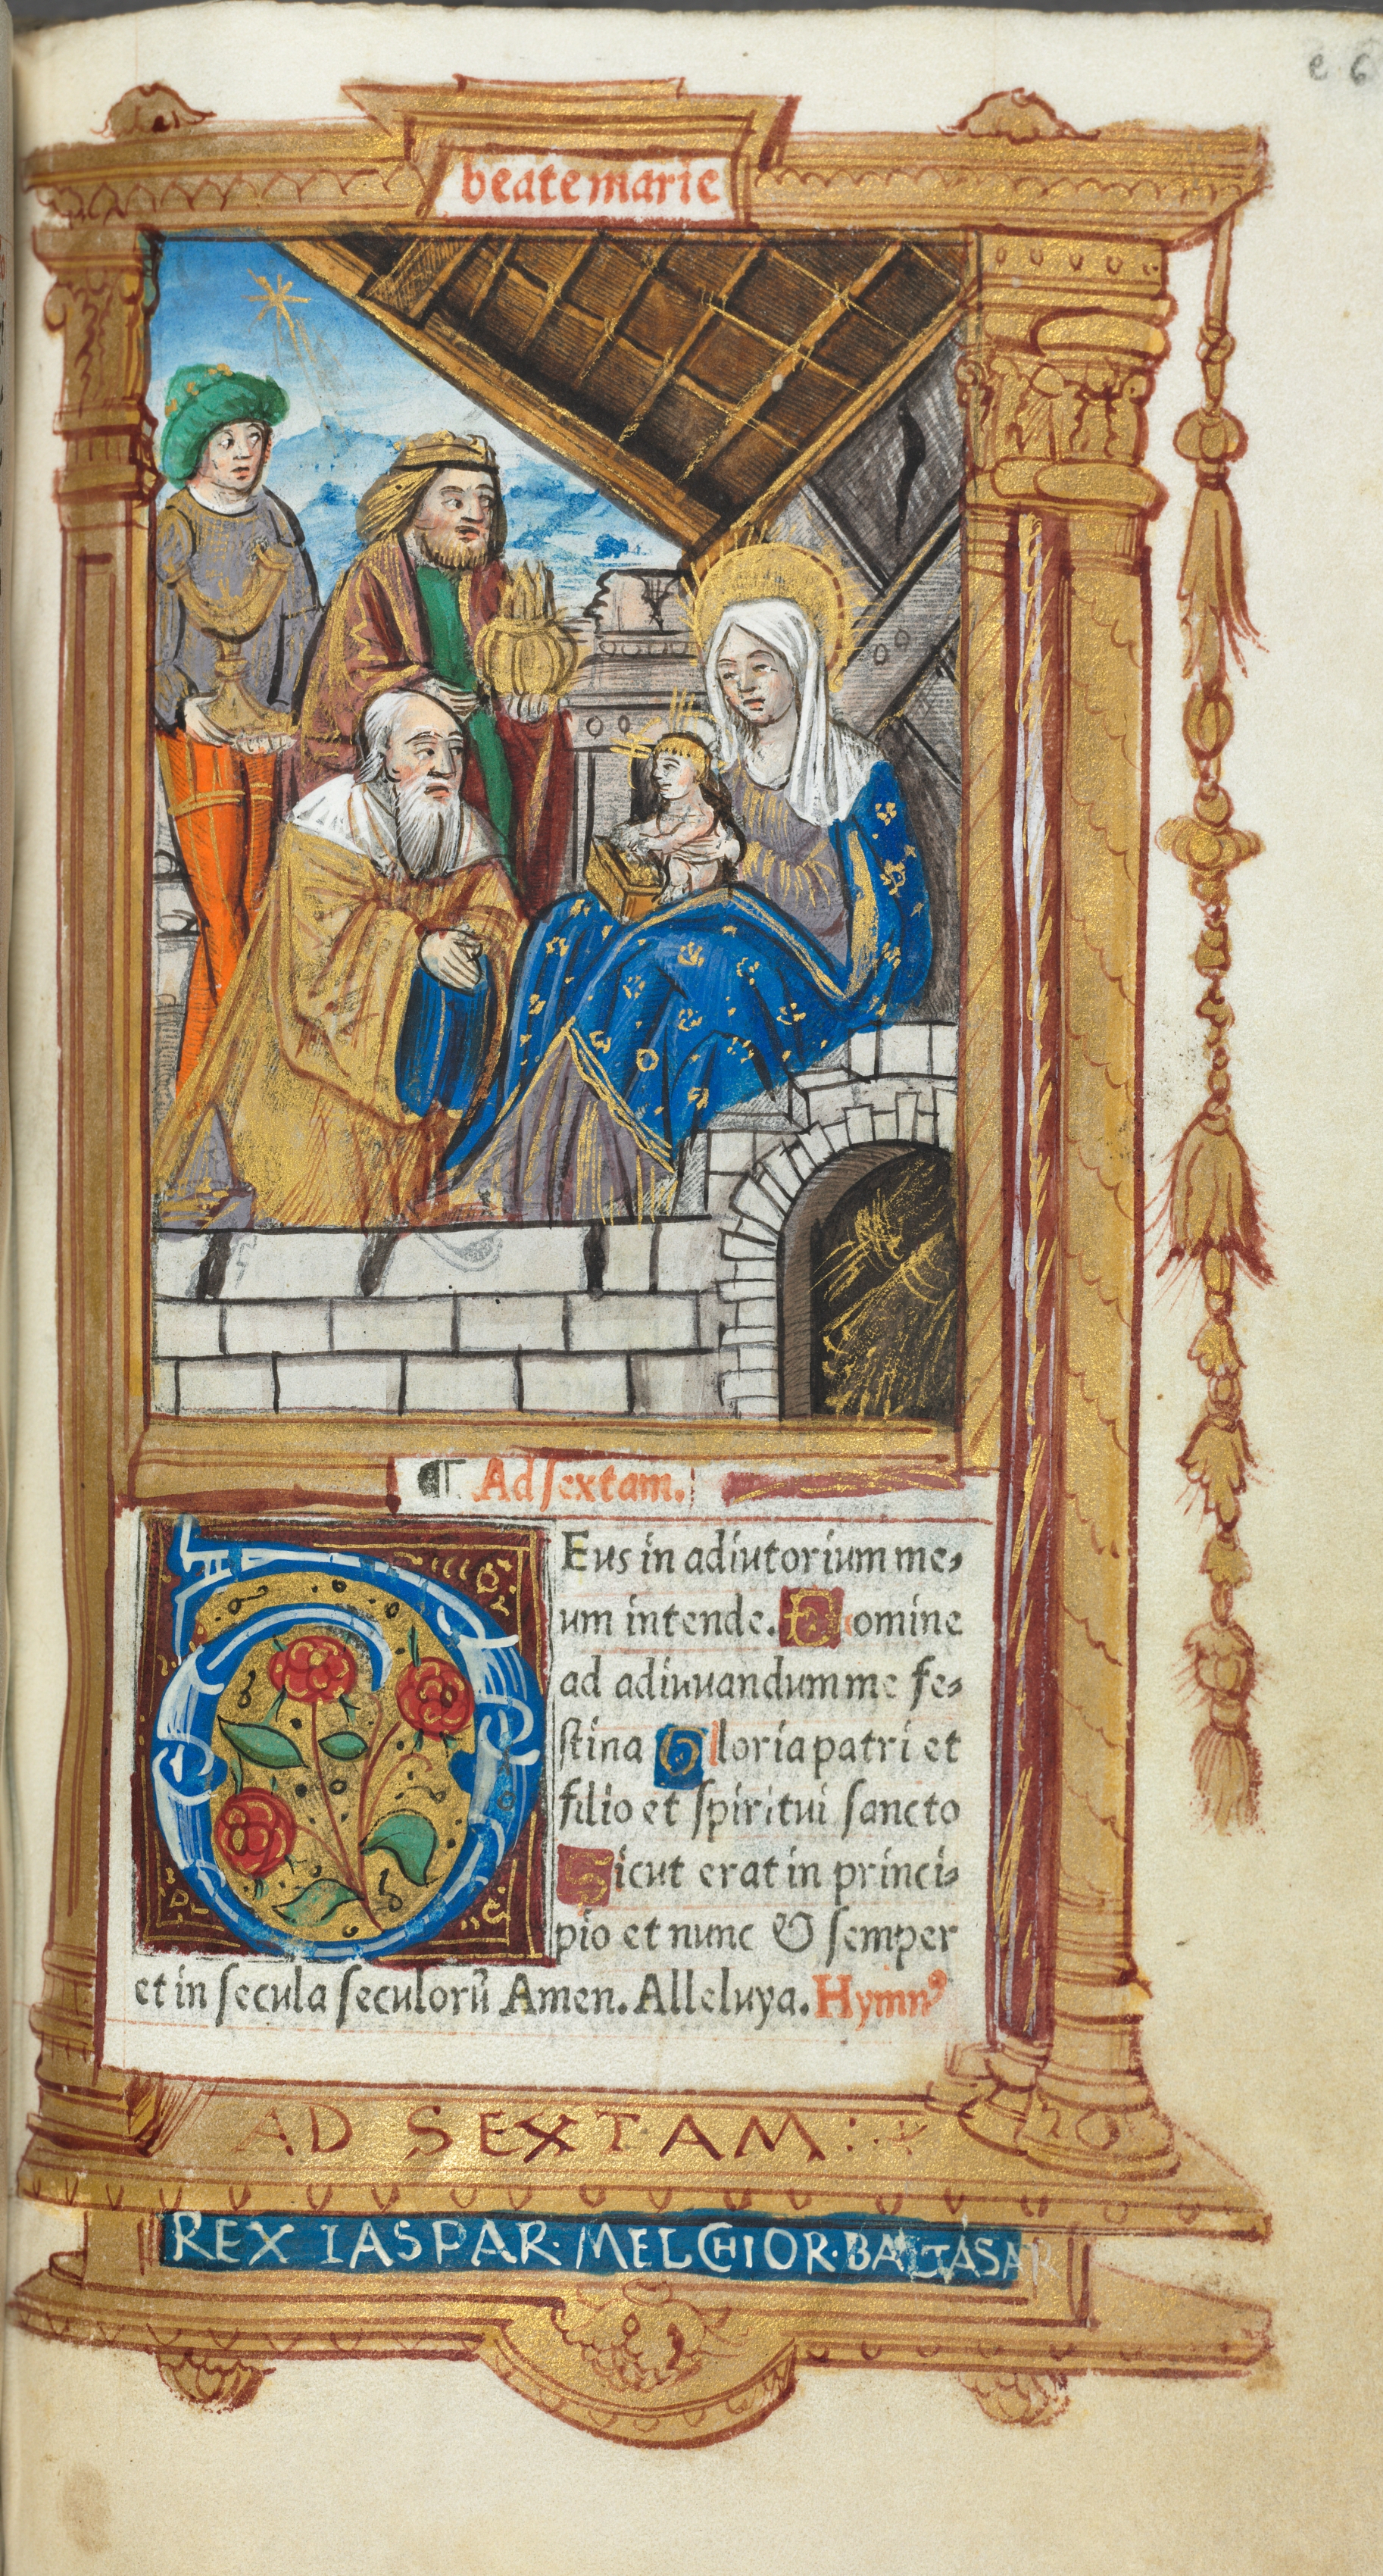 e 6
beate marie
¶ Ad sextam.
DEus in adiutorium me,
um intende. Domine
ad adiuuandum me fe,
stina Gloria patri et
filio et spiritui sancto
Sicut erat in princi,
pio et nunc & semper
et in secula seculorū Amen. Alleluya. Hymnꝰ
AD SEXTAM
REX IASPAR·MELCHIOR·BALTASAR